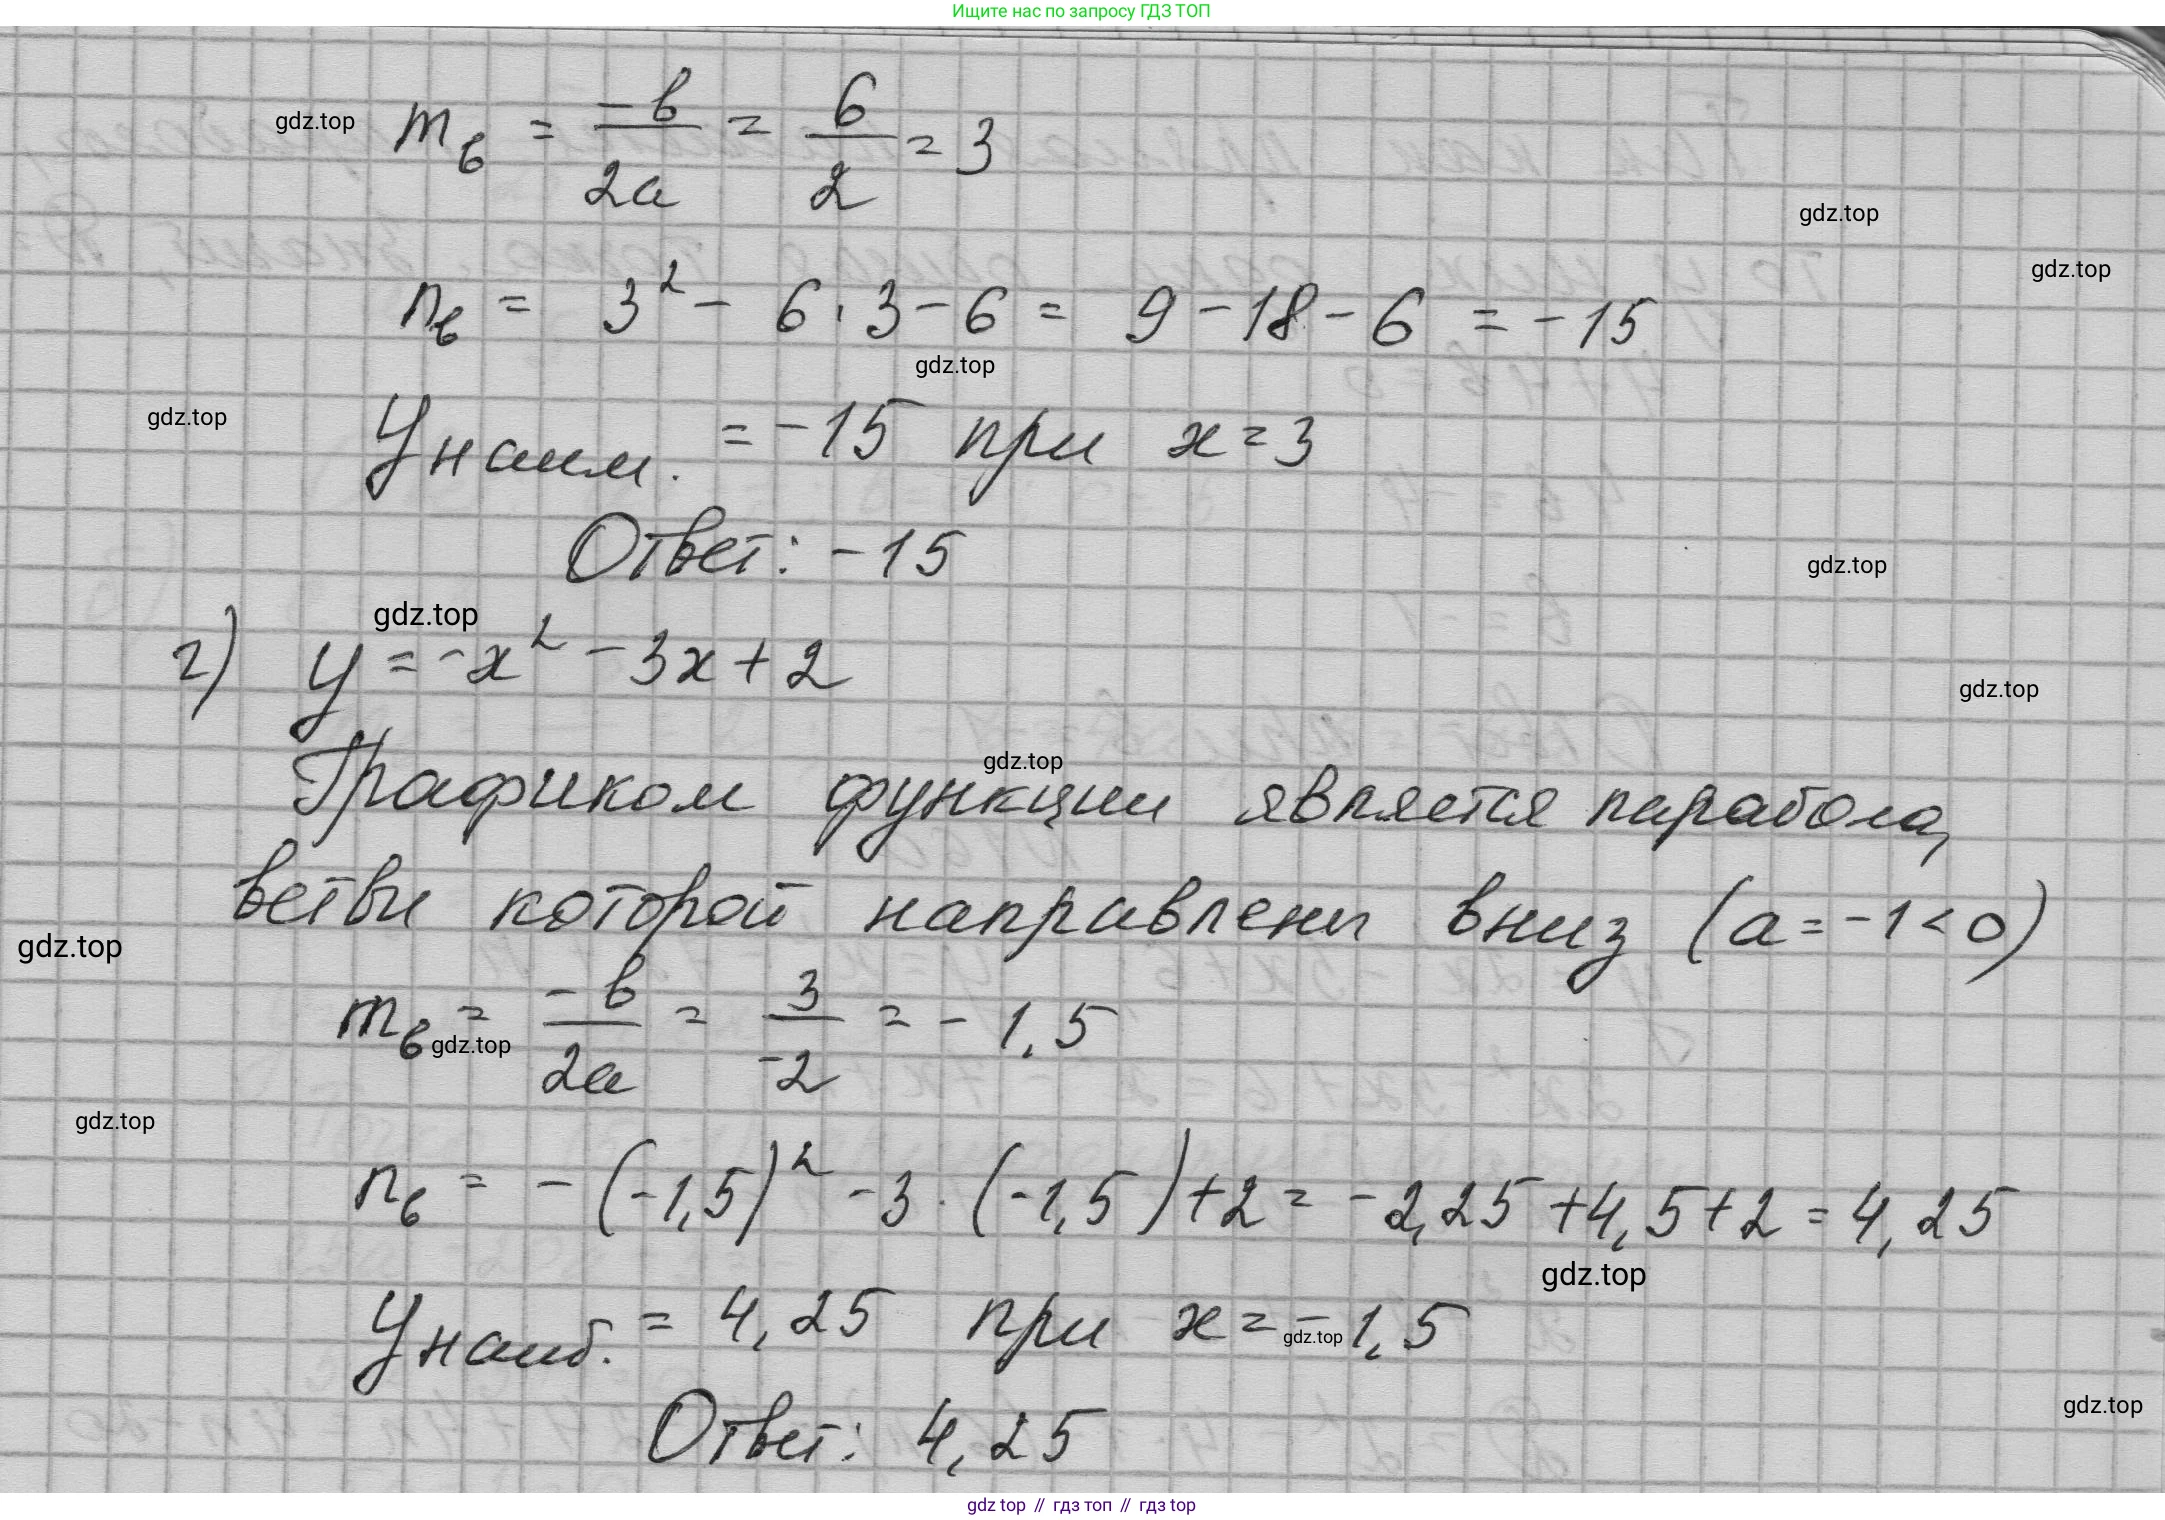 Ищите нас по запросу ГДЗ ТОП
gdz.top
m_в = -b/2a = 6/2 = 3
gdz.top
gdz.top
n_в = 3² - 6 · 3 - 6 = 9 - 18 - 6 = -15
gdz.top
gdz.top
y наим. = -15 при x = 3
Ответ: -15
gdz.top
gdz.top
г) y = -x² - 3x + 2
gdz.top
gdz.top
Графиком функции является парабола,
ветви которой направлены вниз (a = -1 < 0)
gdz.top
m_в = -b/2a = 3/-2 = -1,5
gdz.top
gdz.top
n_в = -(-1,5)² - 3 · (-1,5) + 2 = -2,25 + 4,5 + 2 = 4,25
gdz.top
y наиб. = 4,25 при x = -1,5
gdz.top
gdz.top
Ответ: 4,25
gdz top // гдз топ // гдз top